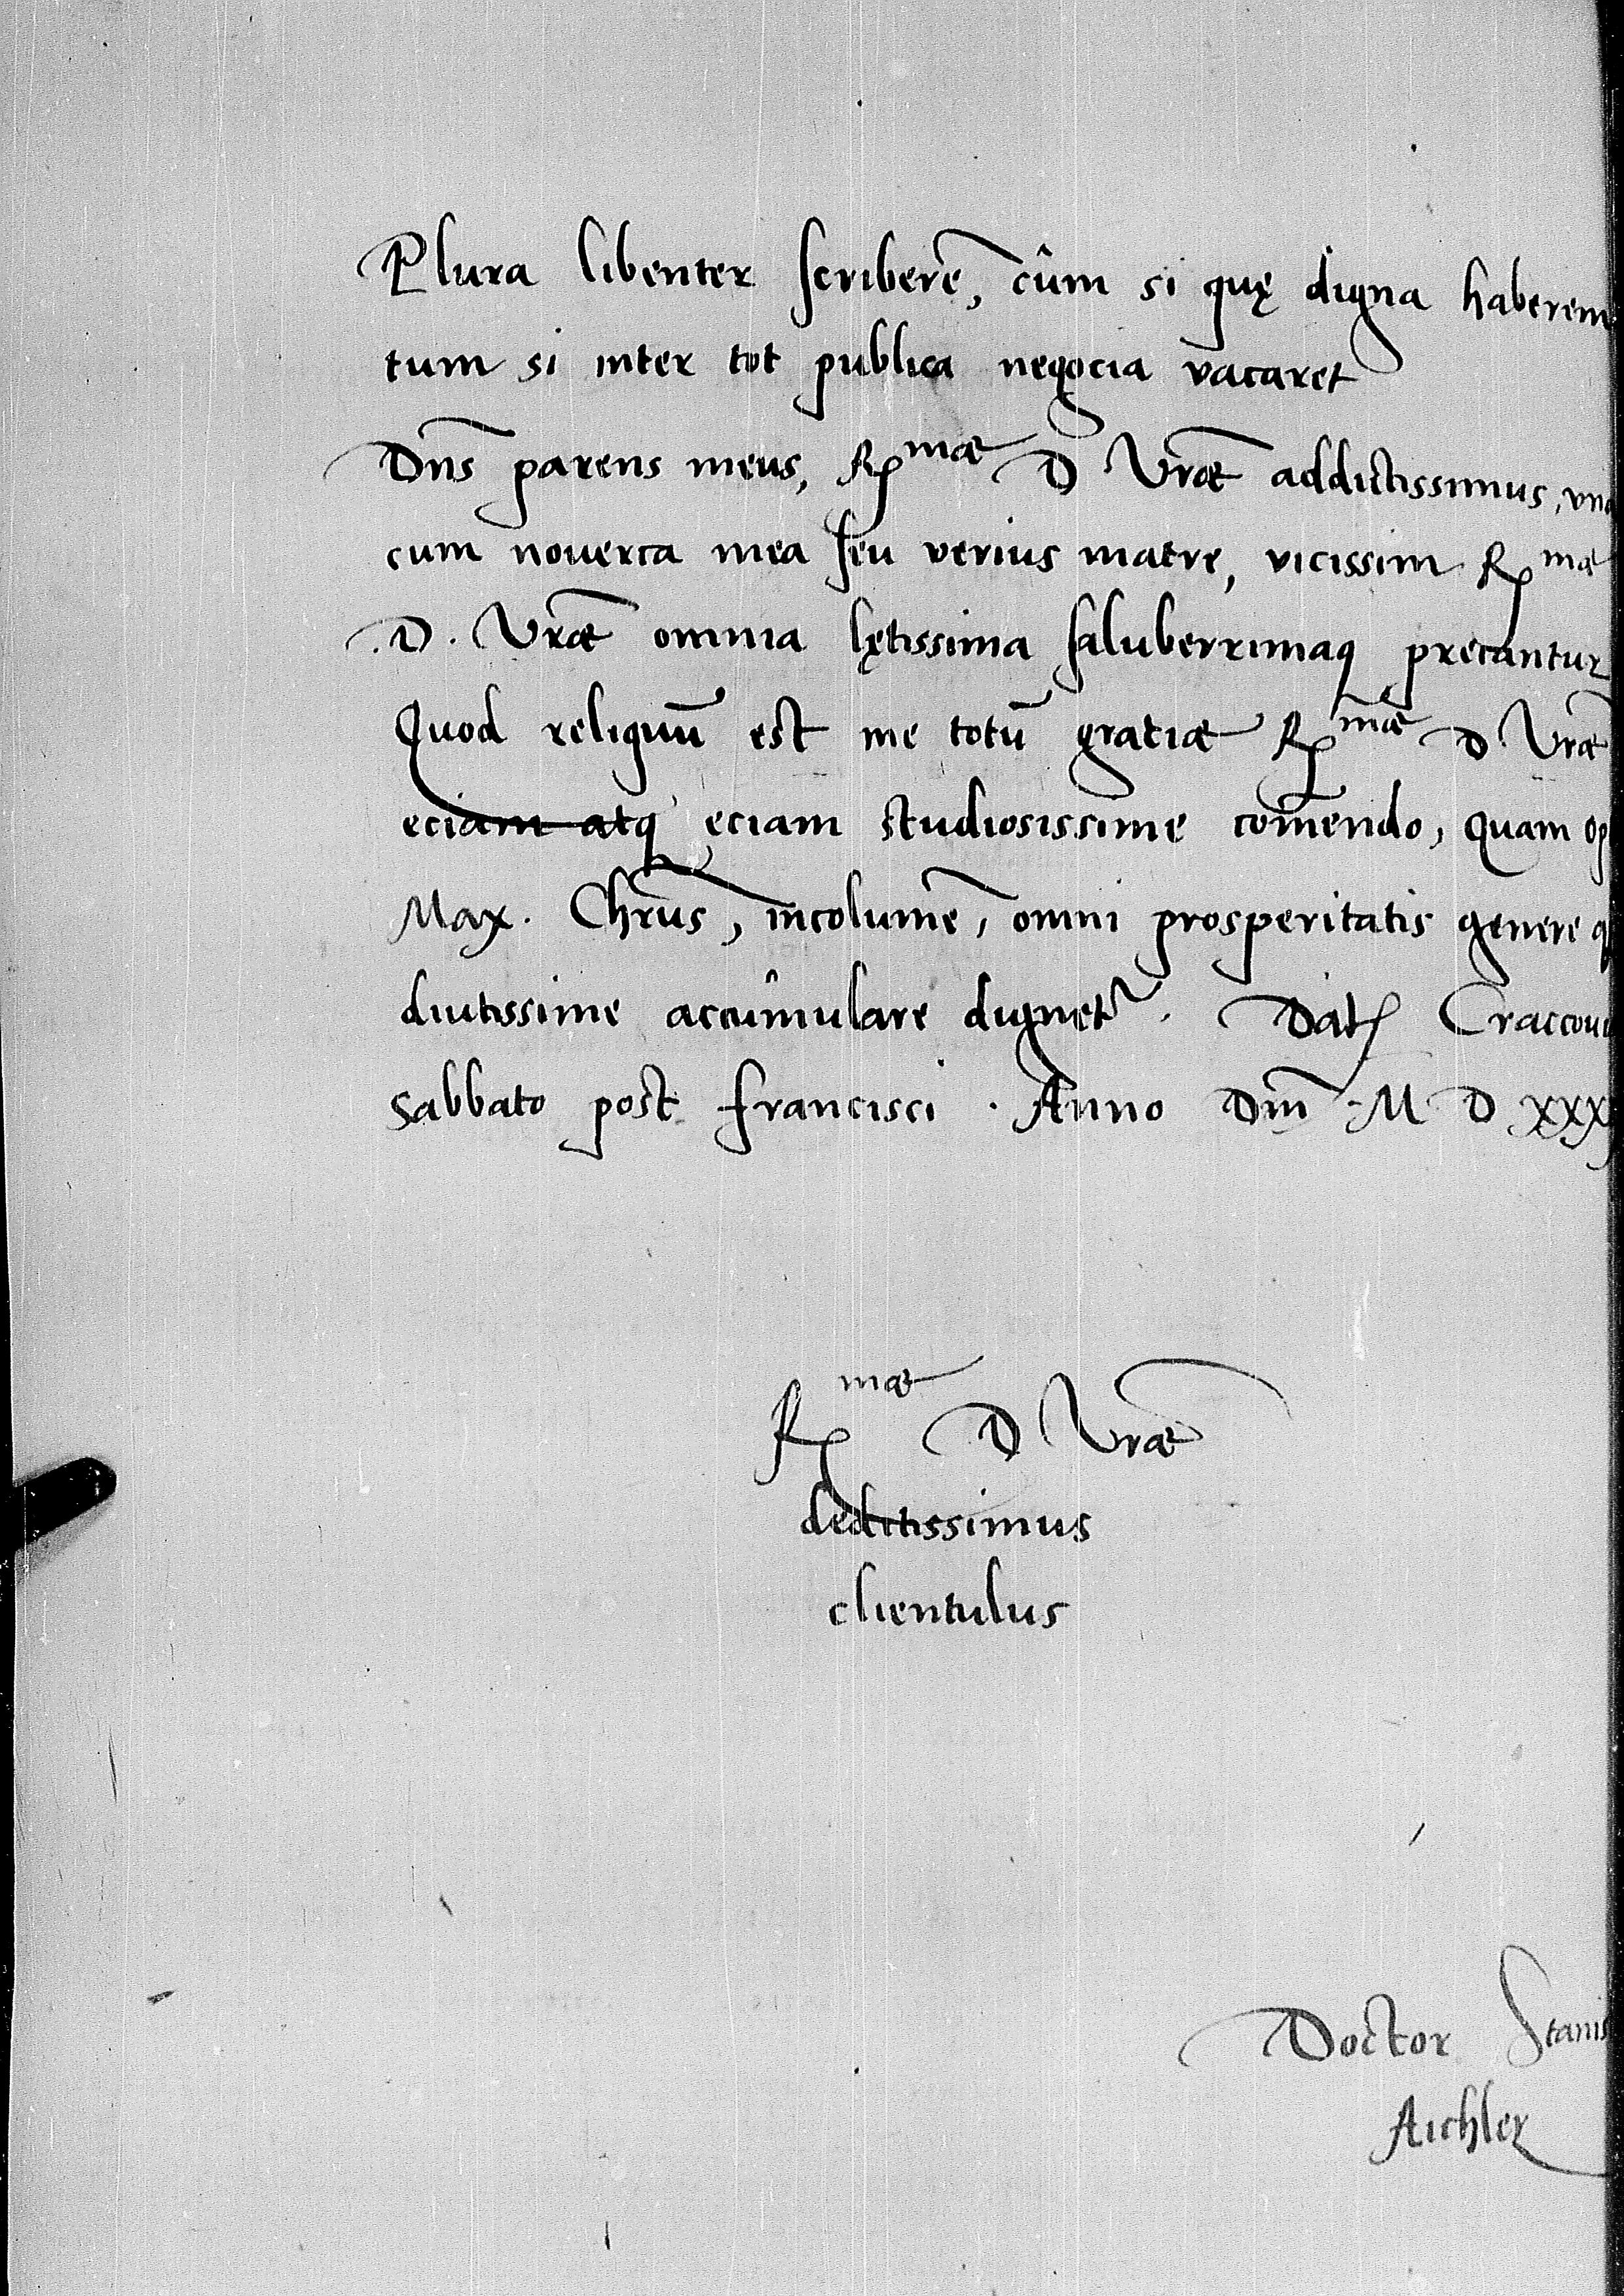 Plura libenter scriberē, cûm si quę digna haberem
tum si inter tot publica negocia vacaret
Dn̄s parens meus, Rmae D Vr̄ae addictissimus, vna
cum nouerca mea seu verius matre, vicissim Rmae
D. Vr̄ae omnia lętissima saluberrimaq precantur
Quod reliquū est me totū gratiae Rmae D Vrae
eciam atq eciam studiosissime com̄endo, quam Op
Max. Chr̄us, incolumē, omni prosperitatis genere q
diutissime accûmulare dignet. Dat Craccoui
Sabbato post Francisci. Anno Dnī M D XXX
Rmae D Vr̄ae
deditissimus
clientulus
Doctor Stanis
Aichler